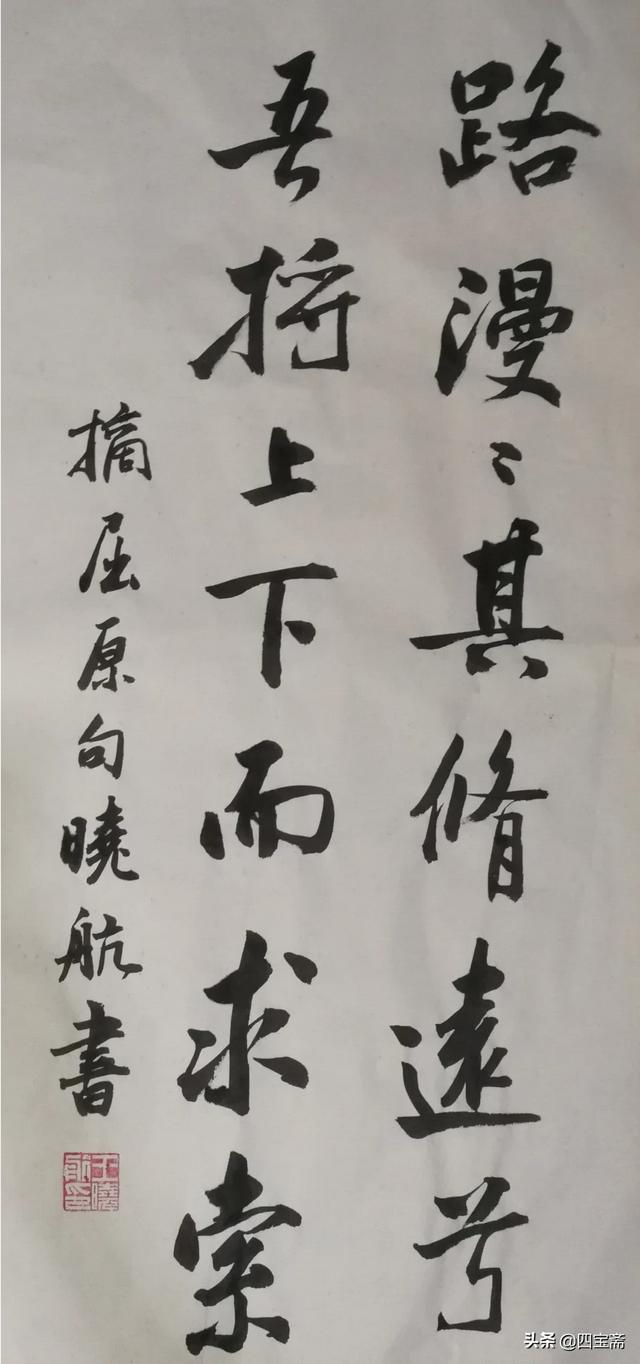 路漫〻其脩遠兮
吾將上下而求索
摘屈原句曉航書
王曉航印
头条 @四宝斋